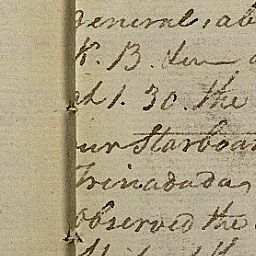 general, ab
N. B. the
at 1. 30. the
our Starboar
Trinadada,
observed the